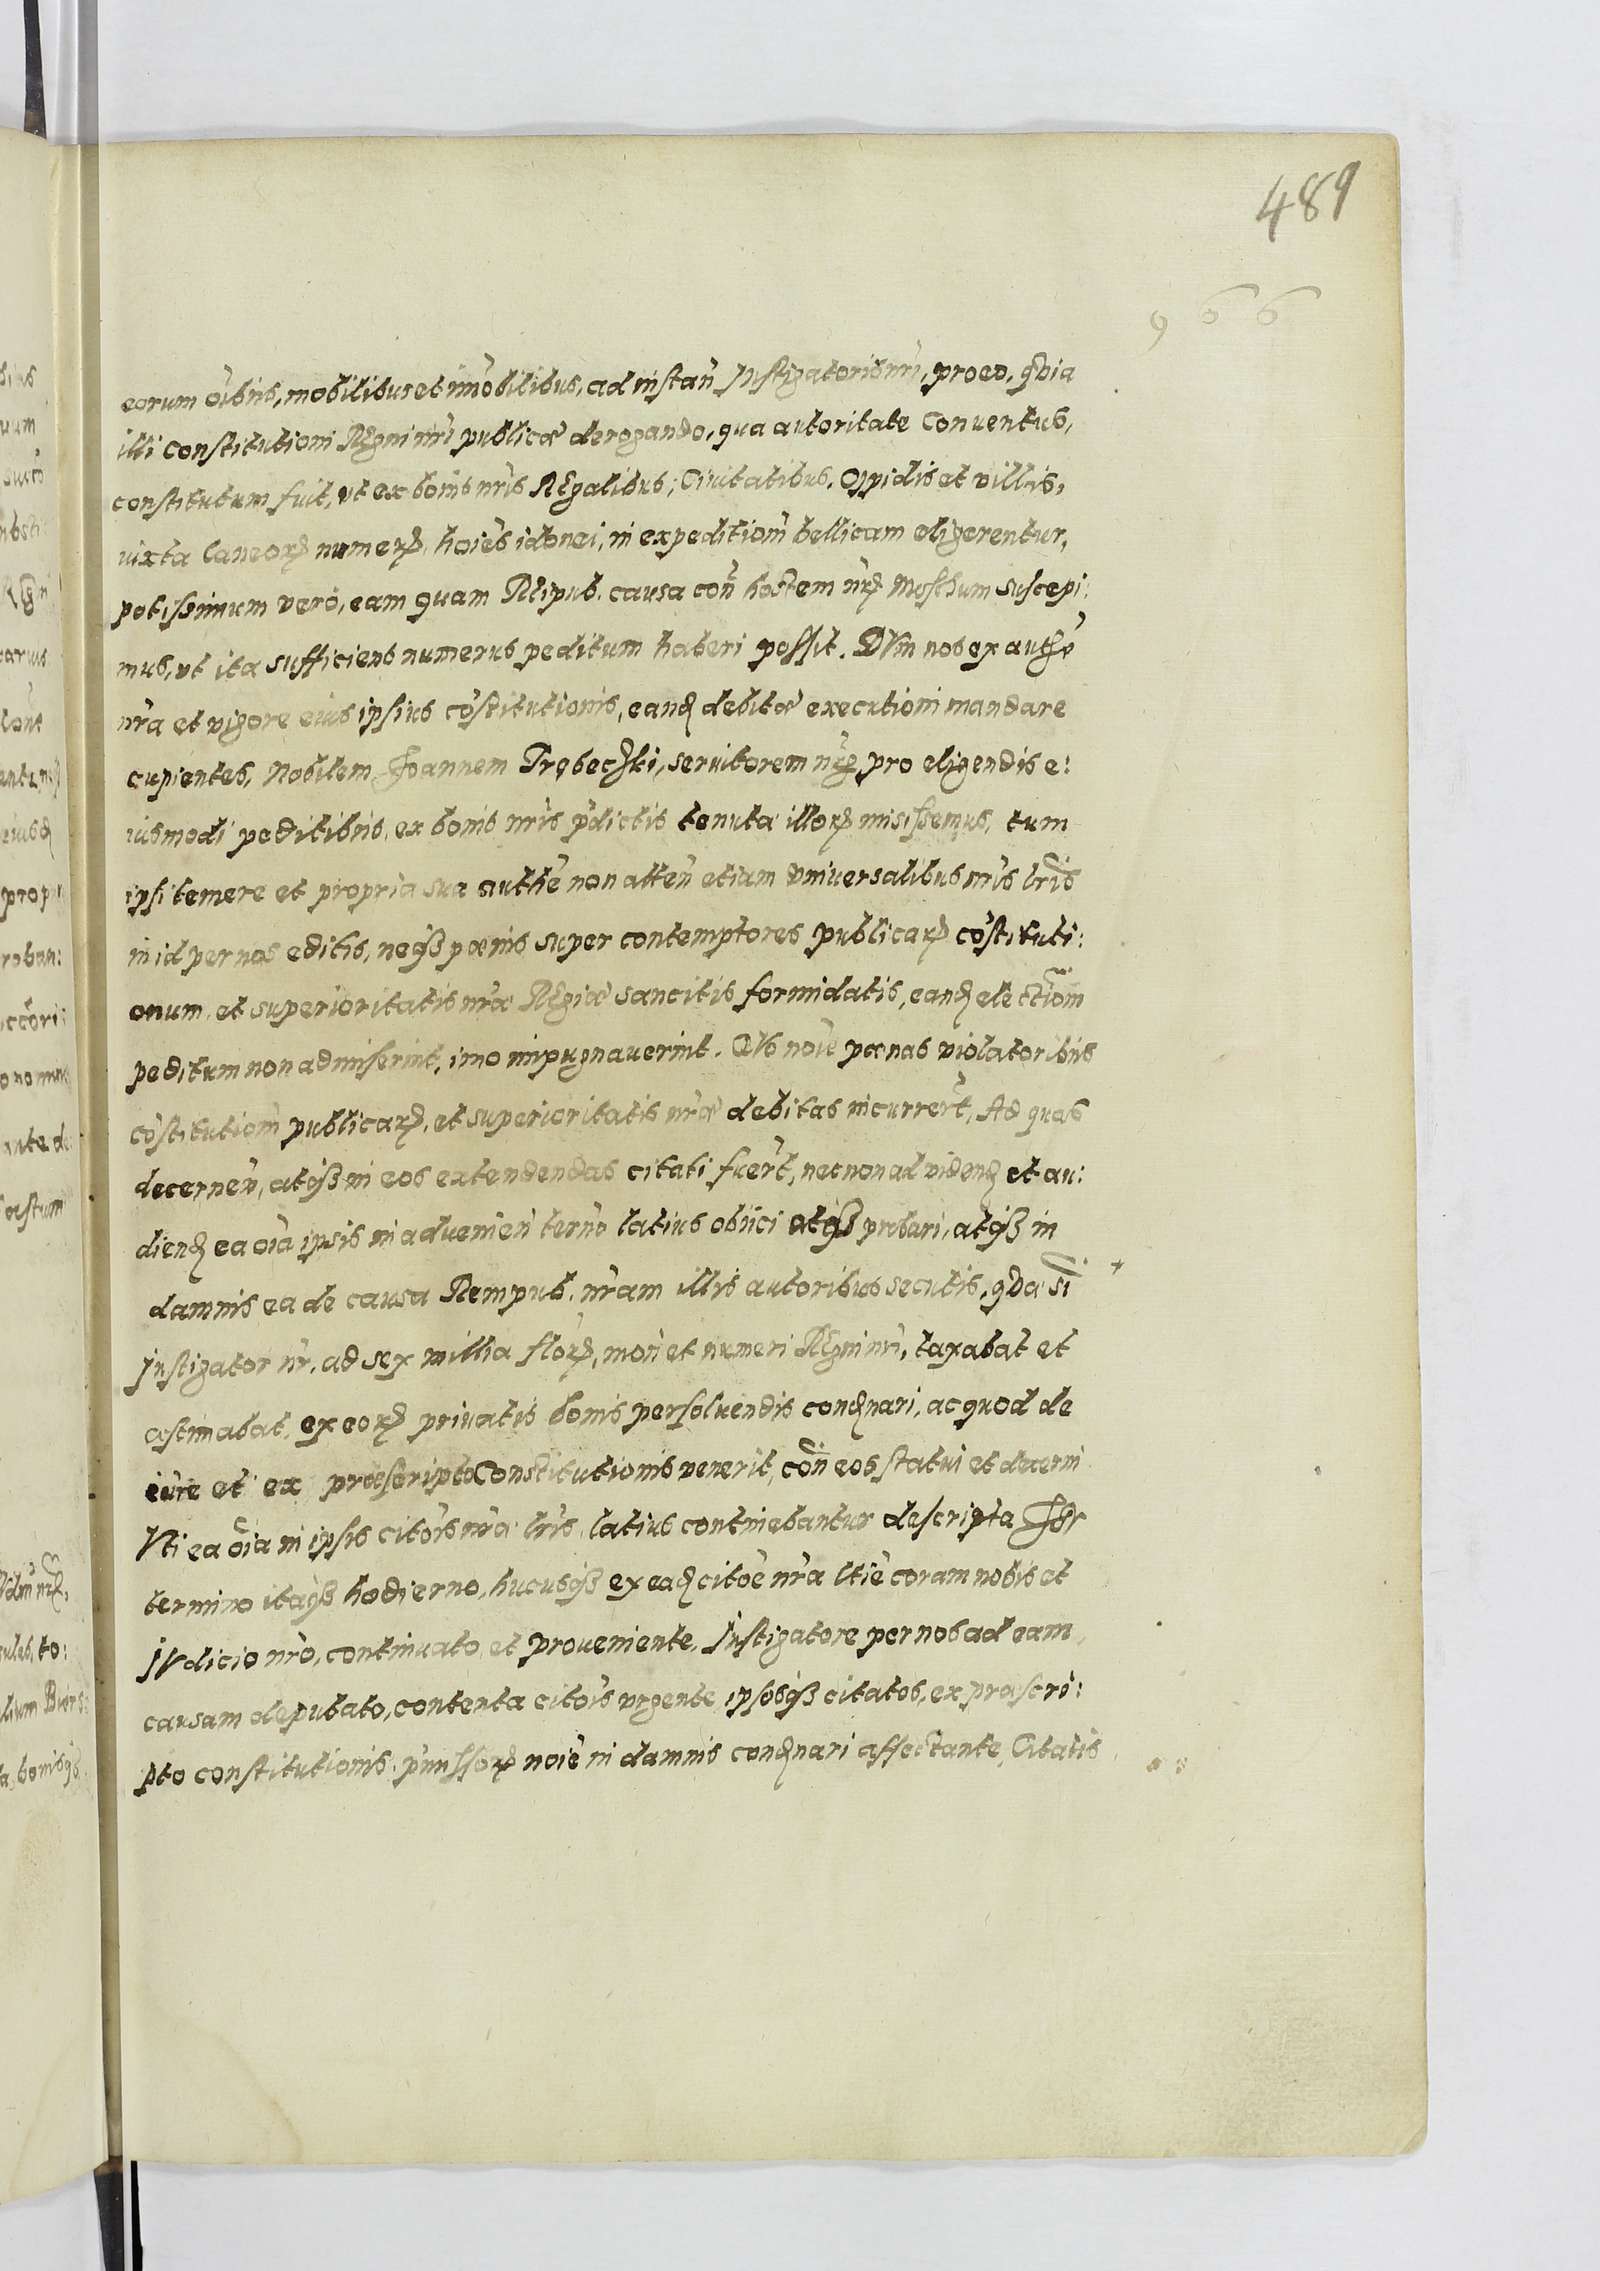 489
966
eorum oibus, mobilibus et imobilibus, ad instan Instigatoris nri, pro eo, quia
illi Constitutioni Regni nri publicæ derogando, qua autoritate Conventus,
constitutum fuit, ut ex bonis nris Regalibus, Civitatibus, Oppidis et villis,
iuxta laneorꝝ numerꝝ, hoies idonei, in expeditiom bellicam eligerentur,
potissimum vero, eam quam Reipub. causa con hostem nrꝝ Moschum suscepi:
mus, ut ita sufficiens numerus peditum haberi possit. DVm nos ex authe
nra et vigore eius ipsius costitutionis, eand debitæ executioni mandare
cupientes, Nobilem Joannem Trębeczki, servitorem nrꝝ, pro eligendis e:
iusmodi peditibus, ex bonis nris pdictis tenutæ illorꝝ misissemus, tum
ipsi temere et propria sua authe non atten etiam Vniversalibus nris lris
in id per nos editis, neqȝ pœnis super contemptores publicarꝝ costituti:
onum, et superioritatis nræ Regiæ sancitis formidatis, eand electiom
peditum non admiserint, imo impugnaverint. QVo noie pœnas violatoribus
costitutiom publicarꝝ, et superioritatis nræ debitas incurrert, Ad quas
decernen, atqȝ in eos extendendas citati fuert, necnon ad videnđ et au:
dienđ ea oia ipsis in advenien terno latius obiici atqȝ probari, atqȝ in
damnis ea de causa Rempub. nram illis autoribus secutis, quæ si +
Instigator nr. ad sex millia florꝝ, mon et numeri Regni nri, taxabat et
æstimabat, ex eorꝝ privatis bonis persolvendis condnari, ac quod de
iure et ex præscripto Constitutionis venerit, con eos statui et decerni
Vti ea oia in ipsis citois nræ lris, latius continebantur descripta In
termino itaqȝ hodierno, hucusqȝ ex ead citoe nra ltie coram nobis et
IVdicio nro, continuato et proveniente, Instigatore per nos ad eam
causam deputato, contenta citois urgente ipsosqȝ citatos, ex præscri:
pto constitutionis, pmissorꝝ noie in damnis condnari affectante, Citatis